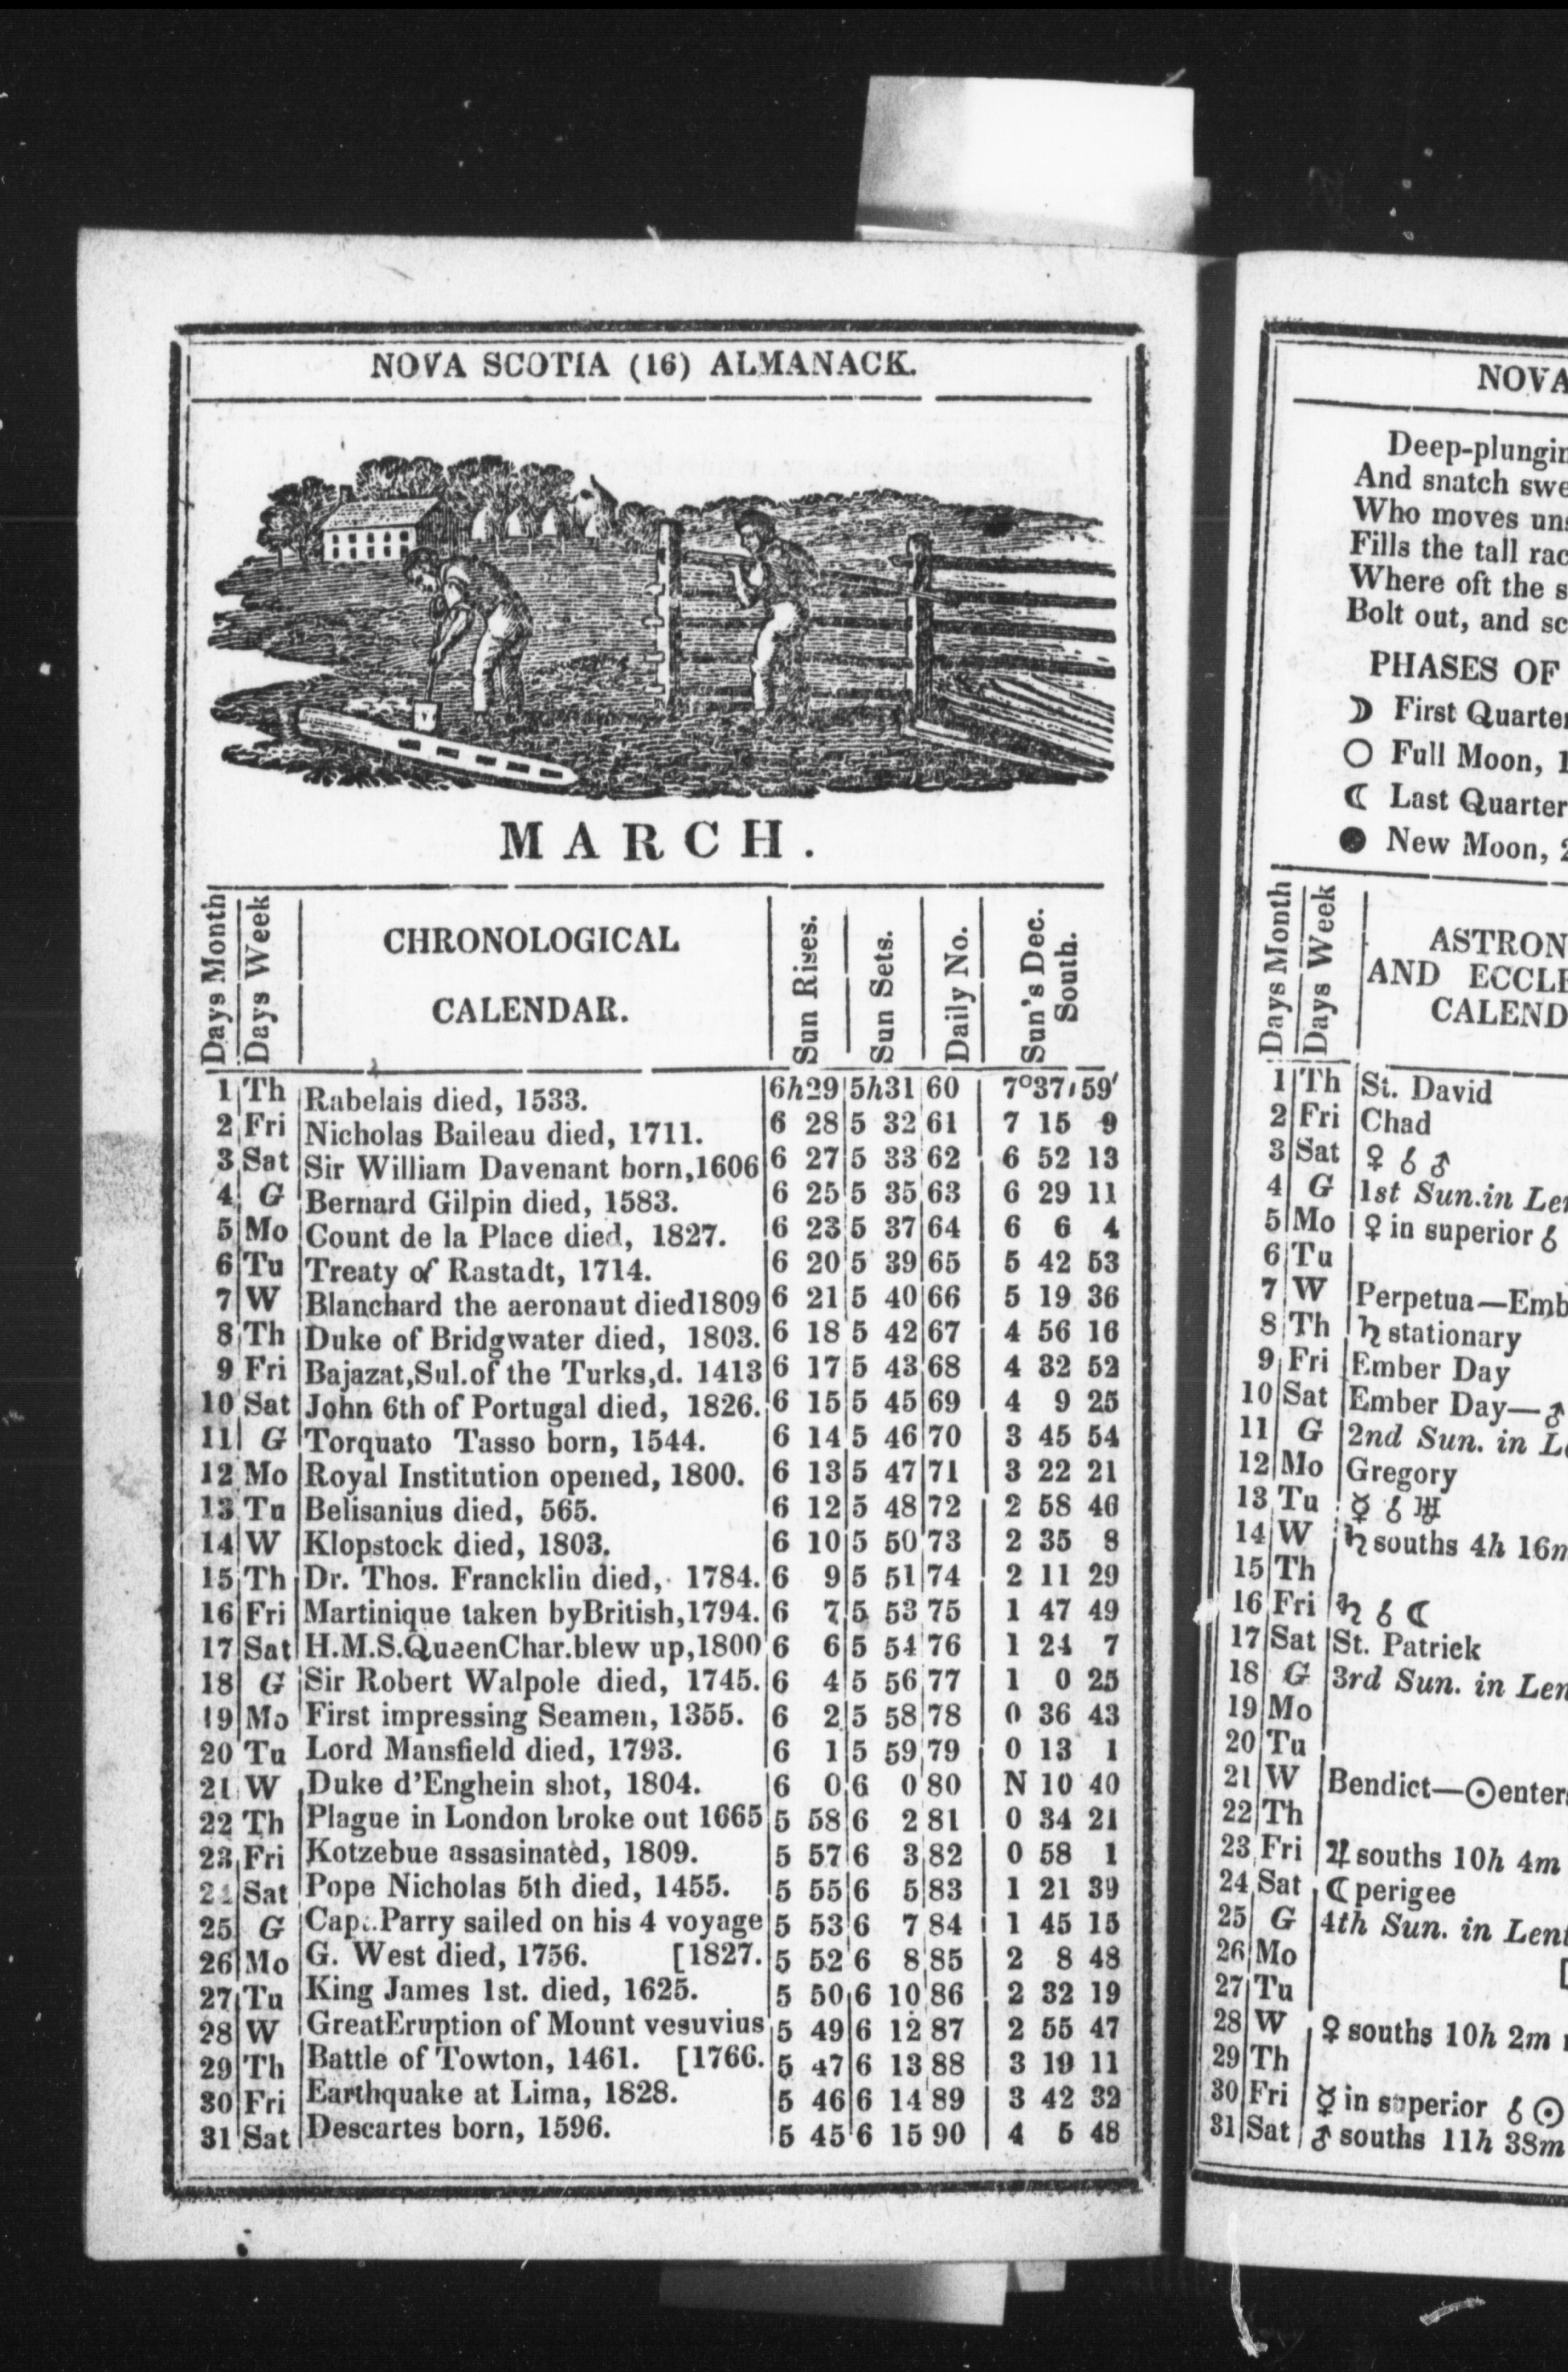 NOVA SCOTIA (16) ALMANACK.
MARCH.
Days Month
Days Week
CHRONOLOGICAL
CALENDAR.
Sun Rises.
Sun Sets.
Daily No.
Sun's Dec.
South.
1 Th Rabelais died, 1533. 6h29 5h31 60 7°37'59'
2 Fri Nicholas Baileau died, 1711. 6 28 5 32 61 7 15 9
3 Sat Sir William Davenant born,1606 6 27 5 33 62 6 52 13
4 G Bernard Gilpin died, 1583. 6 25 5 35 63 6 29 11
5 Mo Count de la Place died, 1827. 6 23 5 37 64 6 6 4
6 Tu Treaty of Rastadt, 1714. 6 20 5 39 65 5 42 53
7 W Blanchard the aeronaut died1809 6 21 5 40 66 5 19 36
8 Th Duke of Bridgwater died, 1803. 6 18 5 42 67 4 56 16
9 Fri Bajazat,Sul.of the Turks,d. 1413 6 17 5 43 68 4 32 52
10 Sat John 6th of Portugal died, 1826. 6 15 5 45 69 4 9 25
11 G Torquato Tasso born, 1544. 6 14 5 46 70 3 45 54
12 Mo Royal Institution opened, 1800. 6 13 5 47 71 3 22 21
13 Tu Belisanius died, 565. 6 12 5 48 72 2 58 46
14 W Klopstock died, 1803. 6 10 5 50 73 2 35 8
15 Th Dr. Thos. Francklin died, 1784. 6 9 5 51 74 2 11 29
16 Fri Martinique taken byBritish,1794. 6 7 5 53 75 1 47 49
17 Sat H.M.S.QueenChar.blew up,1800 6 6 5 54 76 1 24 7
18 G Sir Robert Walpole died, 1745. 6 4 5 56 77 1 0 25
19 Mo First impressing Seamen, 1355. 6 2 5 58 78 0 36 43
20 Tu Lord Mansfield died, 1793. 6 1 5 59 79 0 13 1
21 W Duke d'Enghein shot, 1804. 6 0 6 0 80 N 10 40
22 Th Plague in London broke out 1665 5 58 6 2 81 0 34 21
23 Fri Kotzebue assasinated, 1809. 5 57 6 3 82 0 58 1
24 Sat Pope Nicholas 5th died, 1455. 5 55 6 5 83 1 21 39
25 G Capt.Parry sailed on his 4 voyage 5 53 6 7 84 1 45 15
26 Mo G. West died, 1756. [1827. 5 52 6 8 85 2 8 48
27 Tu King James 1st. died, 1625. 5 50 6 10 86 2 32 19
28 W GreatEruption of Mount vesuvius 5 49 6 12 87 2 55 47
29 Th Battle of Towton, 1461. [1766. 5 47 6 13 88 3 19 11
30 Fri Earthquake at Lima, 1828. 5 46 6 14 89 3 42 32
31 Sat Descartes born, 1596. 5 45 6 15 90 4 5 48
NOVA
Deep-plungin
And snatch swe
Who moves uns
Fills the tall rac
Where oft the s
Bolt out, and sc
PHASES OF
☽ First Quarter
○ Full Moon, 1
☾ Last Quarter
● New Moon, 2
Days Month
Days Week
ASTRON
AND ECCLE
CALEND
1 Th St. David
2 Fri Chad
3 Sat ♀ ☌ ♂
4 G 1st Sun.in Len
5 Mo ♀ in superior ☌
6 Tu
7 W Perpetua—Emb
8 Th ♄ stationary
9 Fri Ember Day
10 Sat Ember Day—♂
11 G 2nd Sun. in Le
12 Mo Gregory
13 Tu ☿ ☌ ♅
14 W ♄ souths 4h 16m
15 Th
16 Fri ♄ ☌ ☾
17 Sat St. Patrick
18 G 3rd Sun. in Len
19 Mo
20 Tu
21 W Bendict—☉enters
22 Th
23 Fri ♃ souths 10h 4m
24 Sat ☾ perigee
25 G 4th Sun. in Lent
26 Mo [
27 Tu
28 W ♀ souths 10h 2m
29 Th
30 Fri ☿ in superior ☌ ☉
31 Sat ♂ souths 11h 38m